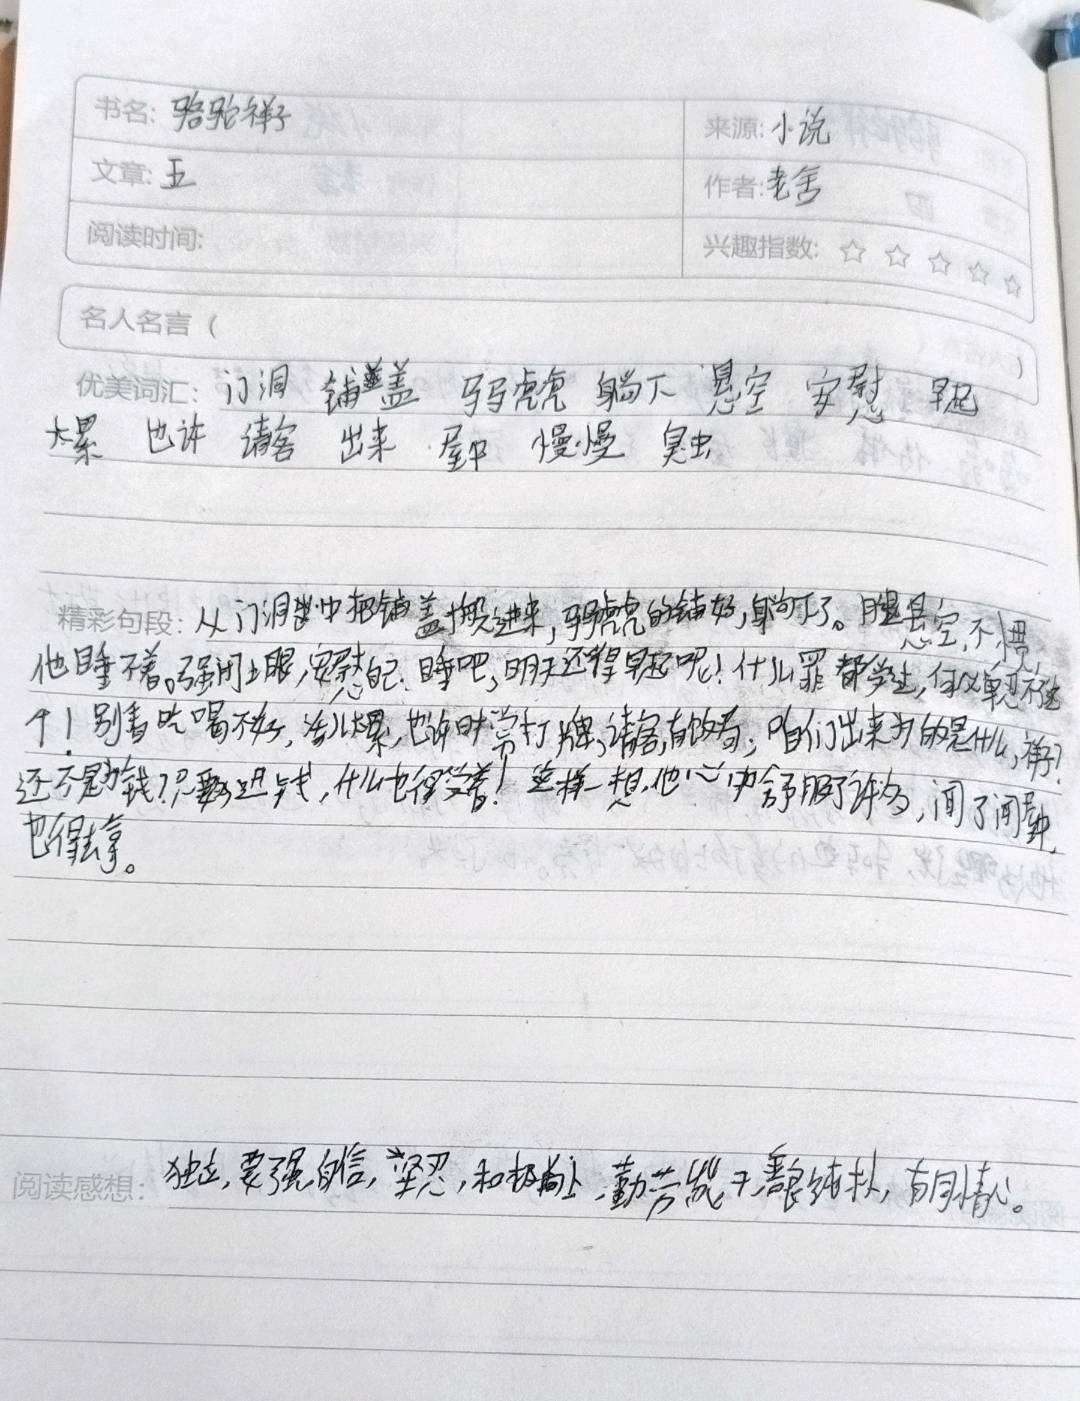 书名: 骆驼祥子 来源: 小说
文章: 五 作者: 老舍
阅读时间: 兴趣指数: ☆ ☆ ☆ ☆ ☆
名人名言 ( )
优美词汇: 门洞 铺盖 马马虎虎 躺下 悬空 安慰 早起
太累 也许 请客 出来 屋中 慢慢 臭虫
精彩句段: 从门洞中把铺盖搬进来,马马虎虎的铺好,躺下了。腿悬空,不惯,
他睡不着。强闭上眼,安慰自己:睡吧,明天还得早起呢!什么罪都受过,何必单忍不了这
个!别看吃喝不好,活儿太累,也许时常打牌,请客,有饭局;咱们出来为的是什么,祥子?
还不是为钱?只要多进钱,什么也得受着!这样一想,他心中舒服了许多,闻了闻屋中,
也得去拿。
阅读感想: 独立,要强,自信,坚忍,和积极向上,勤劳能干,善良纯朴,有同情心。